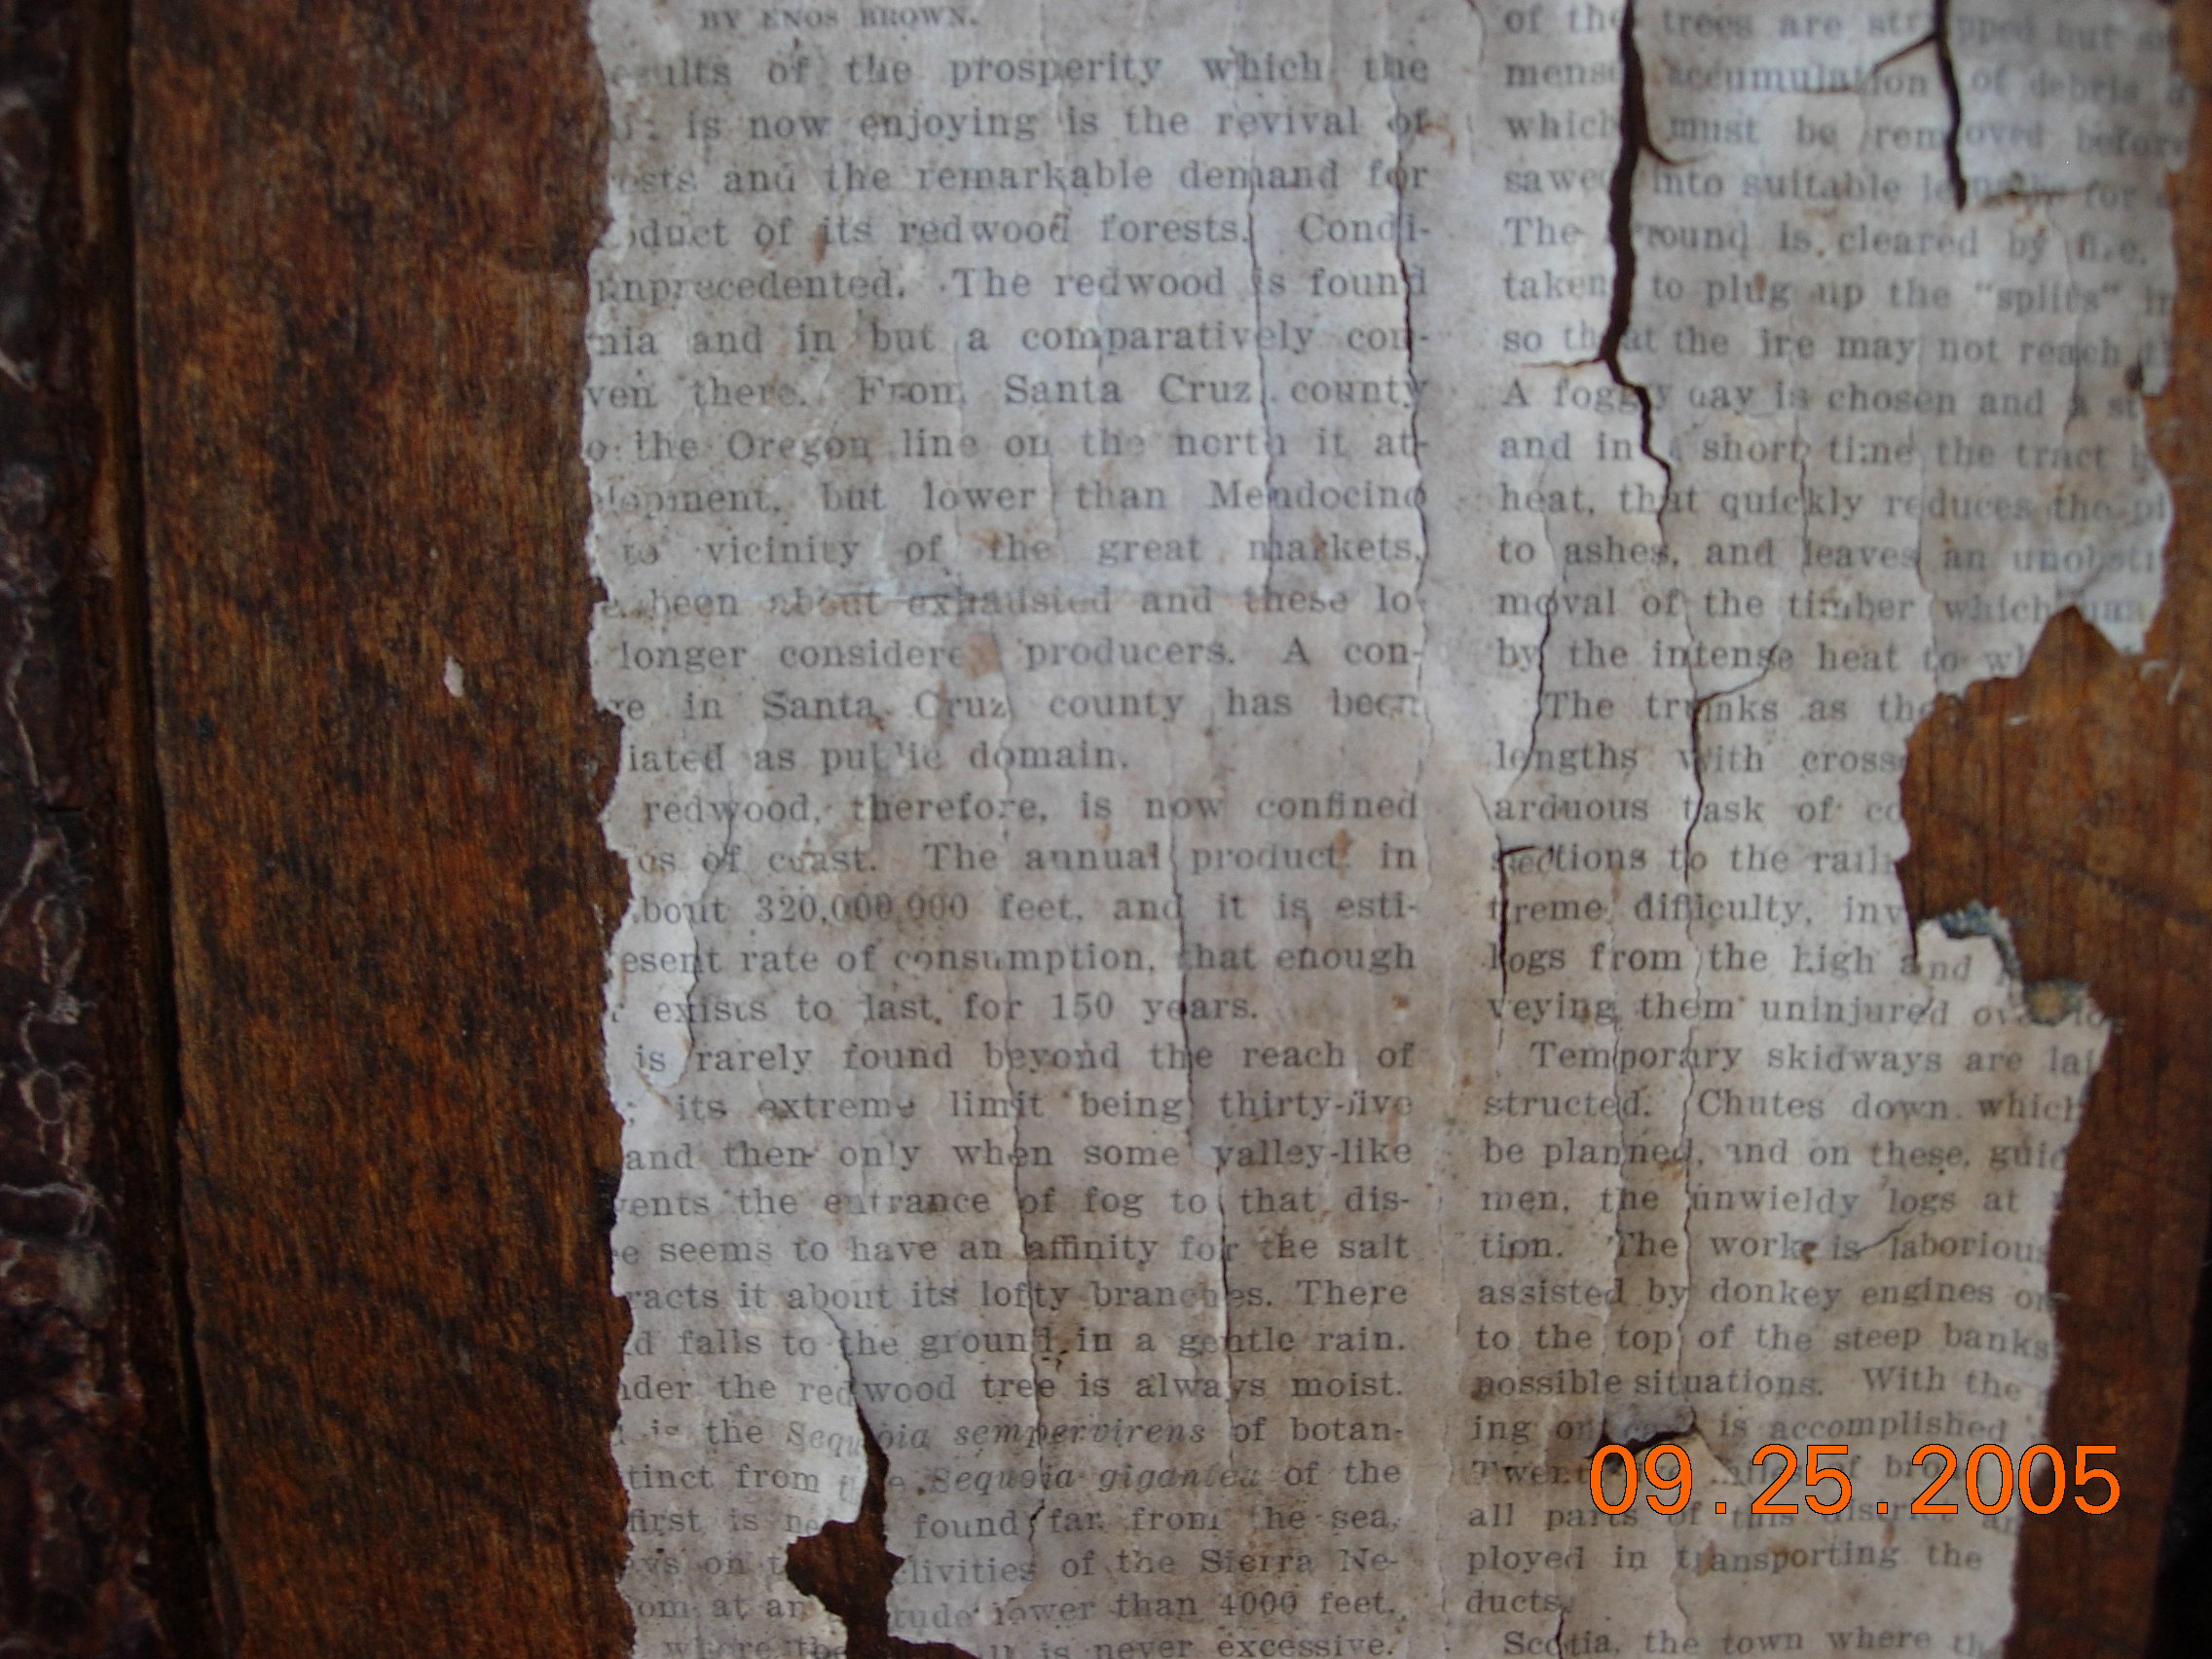 BY ENOS BROWN.
esults of the prosperity which the
is now enjoying is the revival of
ests and the remarkable demand for
oduct of its redwood forests. Condi-
unprecedented. The redwood is found
nia and in but a comparatively con-
ven there. From Santa Cruz county
o the Oregon line on the north it at-
lopment, but lower than Mendocino
to vicinity of the great markets,
e been about exhausted and these lo-
longer considere producers. A con-
ge in Santa Cruz county has been
iated as public domain.
redwood, therefore, is now confined
os of coast. The annual product in
bout 320,000,000 feet, and it is esti-
esent rate of consumption, that enough
exists to last for 150 years.
is rarely found beyond the reach of
; its extreme limit being thirty-five
and then only when some valley-like
vents the entrance of fog to that dis-
e seems to have an affinity for the salt
racts it about its lofty branches. There
d falls to the ground in a gentle rain.
nder the redwood tree is always moist.
is the Sequoia sempervirens of botan-
tinct from the Sequoia gigantea of the
first is ne found far from the sea,
ys on t clivities of the Sierra Ne-
om at an tude lower than 4000 feet,
where the ll is never excessive.
of the trees are stripped but
mense accumulation of debris
which must be removed before
sawed into suitable lengths for
The ground is cleared by fire,
taken to plug up the "splits" in
so that the ire may not reach
A foggy day is chosen and a st
and in a short time the tract
heat, that quickly reduces the
to ashes, and leaves an unobst
moval of the timber which
by the intense heat to wh
The trunks as the
lengths with cross
arduous task of co
sections to the rail
treme difficulty, inv
logs from the high and
veying them uninjured
Temporary skidways are lai
structed. Chutes down which
be planned, and on these, guid
men, the unwieldy logs at
tion. The work is laborious
assisted by donkey engines on
to the top of the steep banks
possible situations. With the
ing on is accomplished
of bro
all parts of this district
ployed in transporting the
ducts.
Scotia, the town where th
09.25.2005